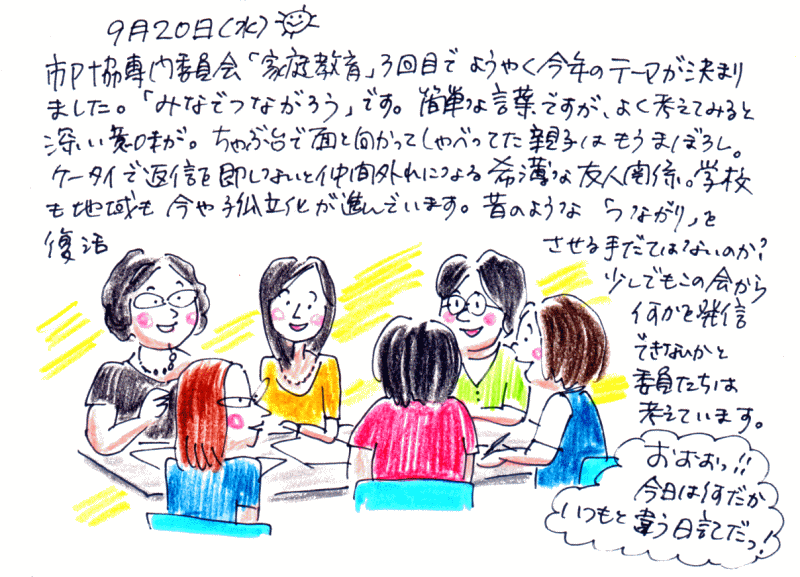 9月20日(水)
市P協専門委員会「家庭教育」3回目でようやく今年のテーマが決まり
ました。「みなでつながろう」です。簡単な言葉ですが、よく考えてみると
深い意味が。ちゃぶ台で面と向かってしゃべってた親子はもうまぼろし。
ケータイで返信を即しないと仲間外れになる希薄な友人関係。学校
も地域も今や孤立化が進んでいます。昔のような「つながり」を
復活させる手だてはないのか?
少しでもこの会から
何かを発信
できないかと
委員たちは
考えています。
おおおっ!!
今日は何だか
いつもと違う日記だっ!